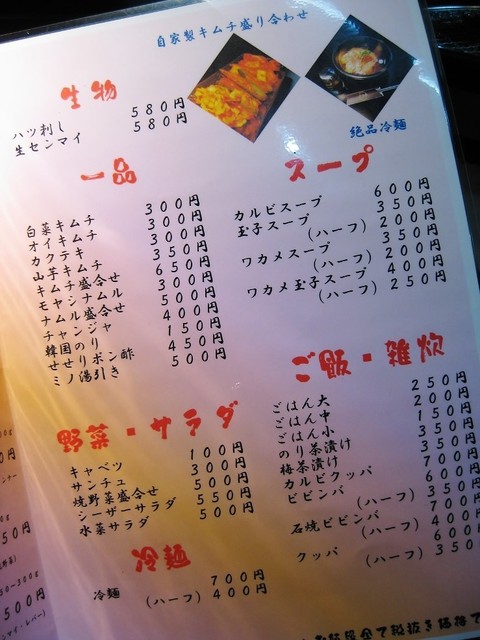 自家製キムチ盛り合わせ
絶品冷麺
生物
ハツ刺し 580円
生センマイ 580円
一品
白菜キムチ 300円
オイキムチ 300円
カクテキ 300円
山芋キムチ 350円
キムチ盛合せ 650円
モヤシナムル 300円
ナムル盛合せ 500円
チャンジャ 400円
韓国のり 150円
せせりポン酢 450円
ミノ湯引き 500円
野菜・サラダ
キャベツ 100円
サンチュ 300円
焼野菜盛合せ 500円
シーザーサラダ 550円
水菜サラダ 500円
冷麺
冷麺 700円
(ハーフ) 400円
スープ
カルビスープ 600円
玉子スープ 350円
(ハーフ) 200円
ワカメスープ 350円
(ハーフ) 200円
ワカメ玉子スープ 400円
(ハーフ) 250円
ご飯・雑炊
ごはん大 250円
ごはん中 200円
ごはん小 150円
のり茶漬け 350円
梅茶漬け 350円
カルビクッパ 700円
ビビンバ 600円
(ハーフ) 350円
石焼ビビンバ 700円
(ハーフ) 400円
クッパ 600円
(ハーフ) 350
全て税抜き価格で